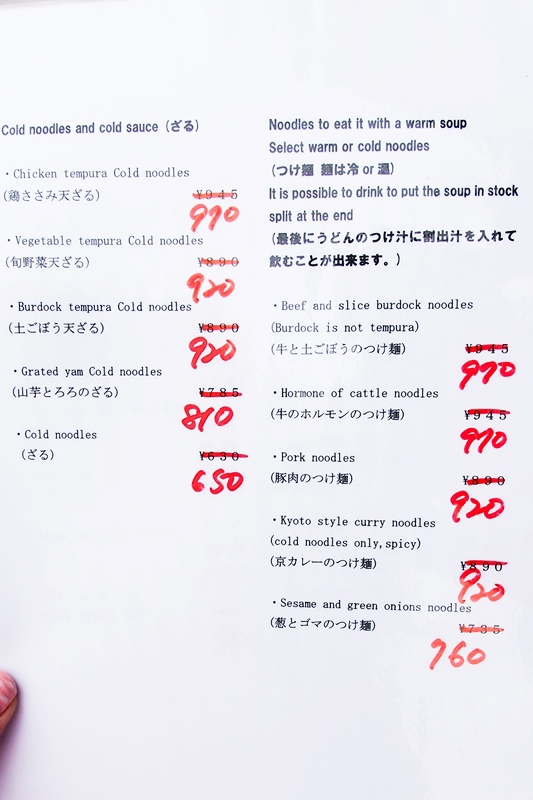 Cold noodles and cold sauce (ざる)
・Chicken tempura Cold noodles
(鶏ささみ天ざる) ¥945
970
・Vegetable tempura Cold noodles
(旬野菜天ざる) ¥890
920
・Burdock tempura Cold noodles
(土ごぼう天ざる) ¥890
920
・Grated yam Cold noodles
(山芋とろろのざる) ¥785
810
・Cold noodles
(ざる) ¥630
650
Noodles to eat it with a warm soup
Select warm or cold noodles
(つけ麺 麺は冷 or 温)
It is possible to drink to put the soup in stock
split at the end
(最後にうどんのつけ汁に割出汁を入れて
飲むことが出来ます。)
・Beef and slice burdock noodles
(Burdock is not tempura)
(牛と土ごぼうのつけ麺) ¥945
970
・Hormone of cattle noodles
(牛のホルモンのつけ麺) ¥945
970
・Pork noodles
(豚肉のつけ麺) ¥890
920
・Kyoto style curry noodles
(cold noodles only,spicy)
(京カレーのつけ麺) ¥890
920
・Sesame and green onions noodles
(葱とゴマのつけ麺) ¥735
760